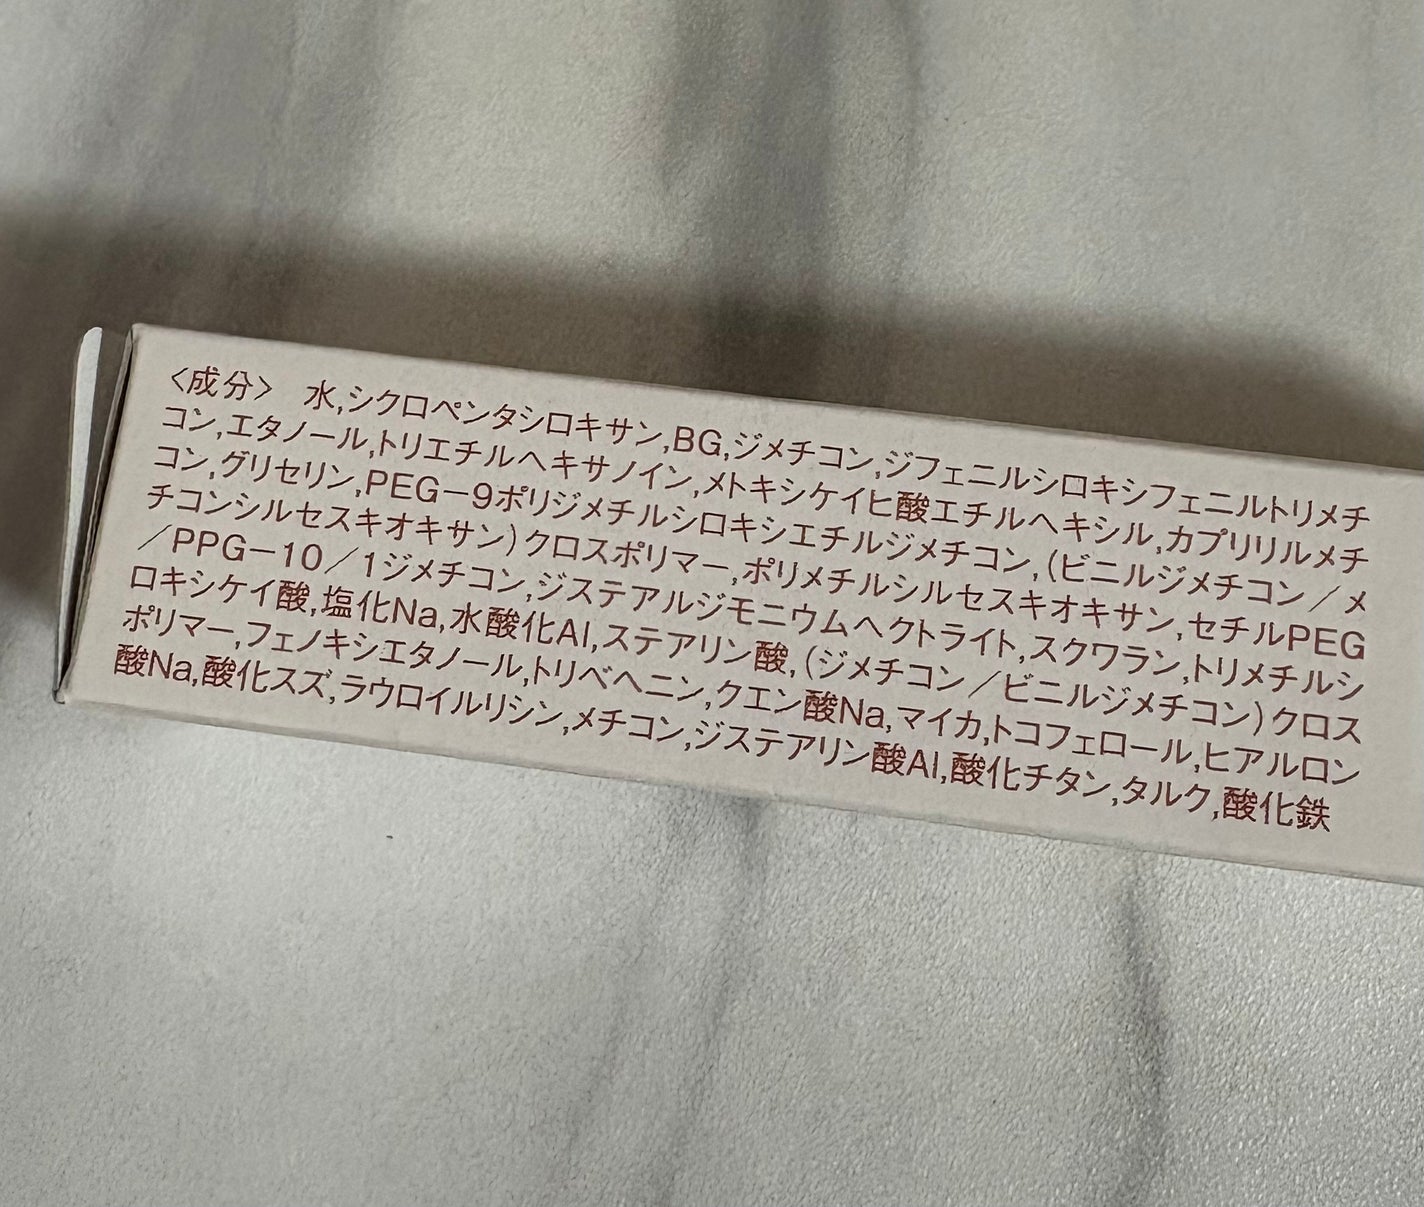 〈成分〉 水,シクロペンタシロキサン,BG,ジメチコン,ジフェニルシロキシフェニルトリメチ
コン,エタノール,トリエチルヘキサノイン,メトキシケイヒ酸エチルヘキシル,カプリリルメチ
コン,グリセリン,PEG－9ポリジメチルシロキシエチルジメチコン,(ビニルジメチコン／メ
チコンシルセスキオキサン)クロスポリマー,ポリメチルシルセスキオキサン,セチルPEG
／PPG－10／1ジメチコン,ジステアルジモニウムヘクトライト,スクワラン,トリメチルシ
ロキシケイ酸,塩化Na,水酸化Al,ステアリン酸,(ジメチコン／ビニルジメチコン)クロス
ポリマー,フェノキシエタノール,トリベヘニン,クエン酸Na,マイカ,トコフェロール,ヒアルロン
酸Na,酸化スズ,ラウロイルリシン,メチコン,ジステアリン酸Al,酸化チタン,タルク,酸化鉄